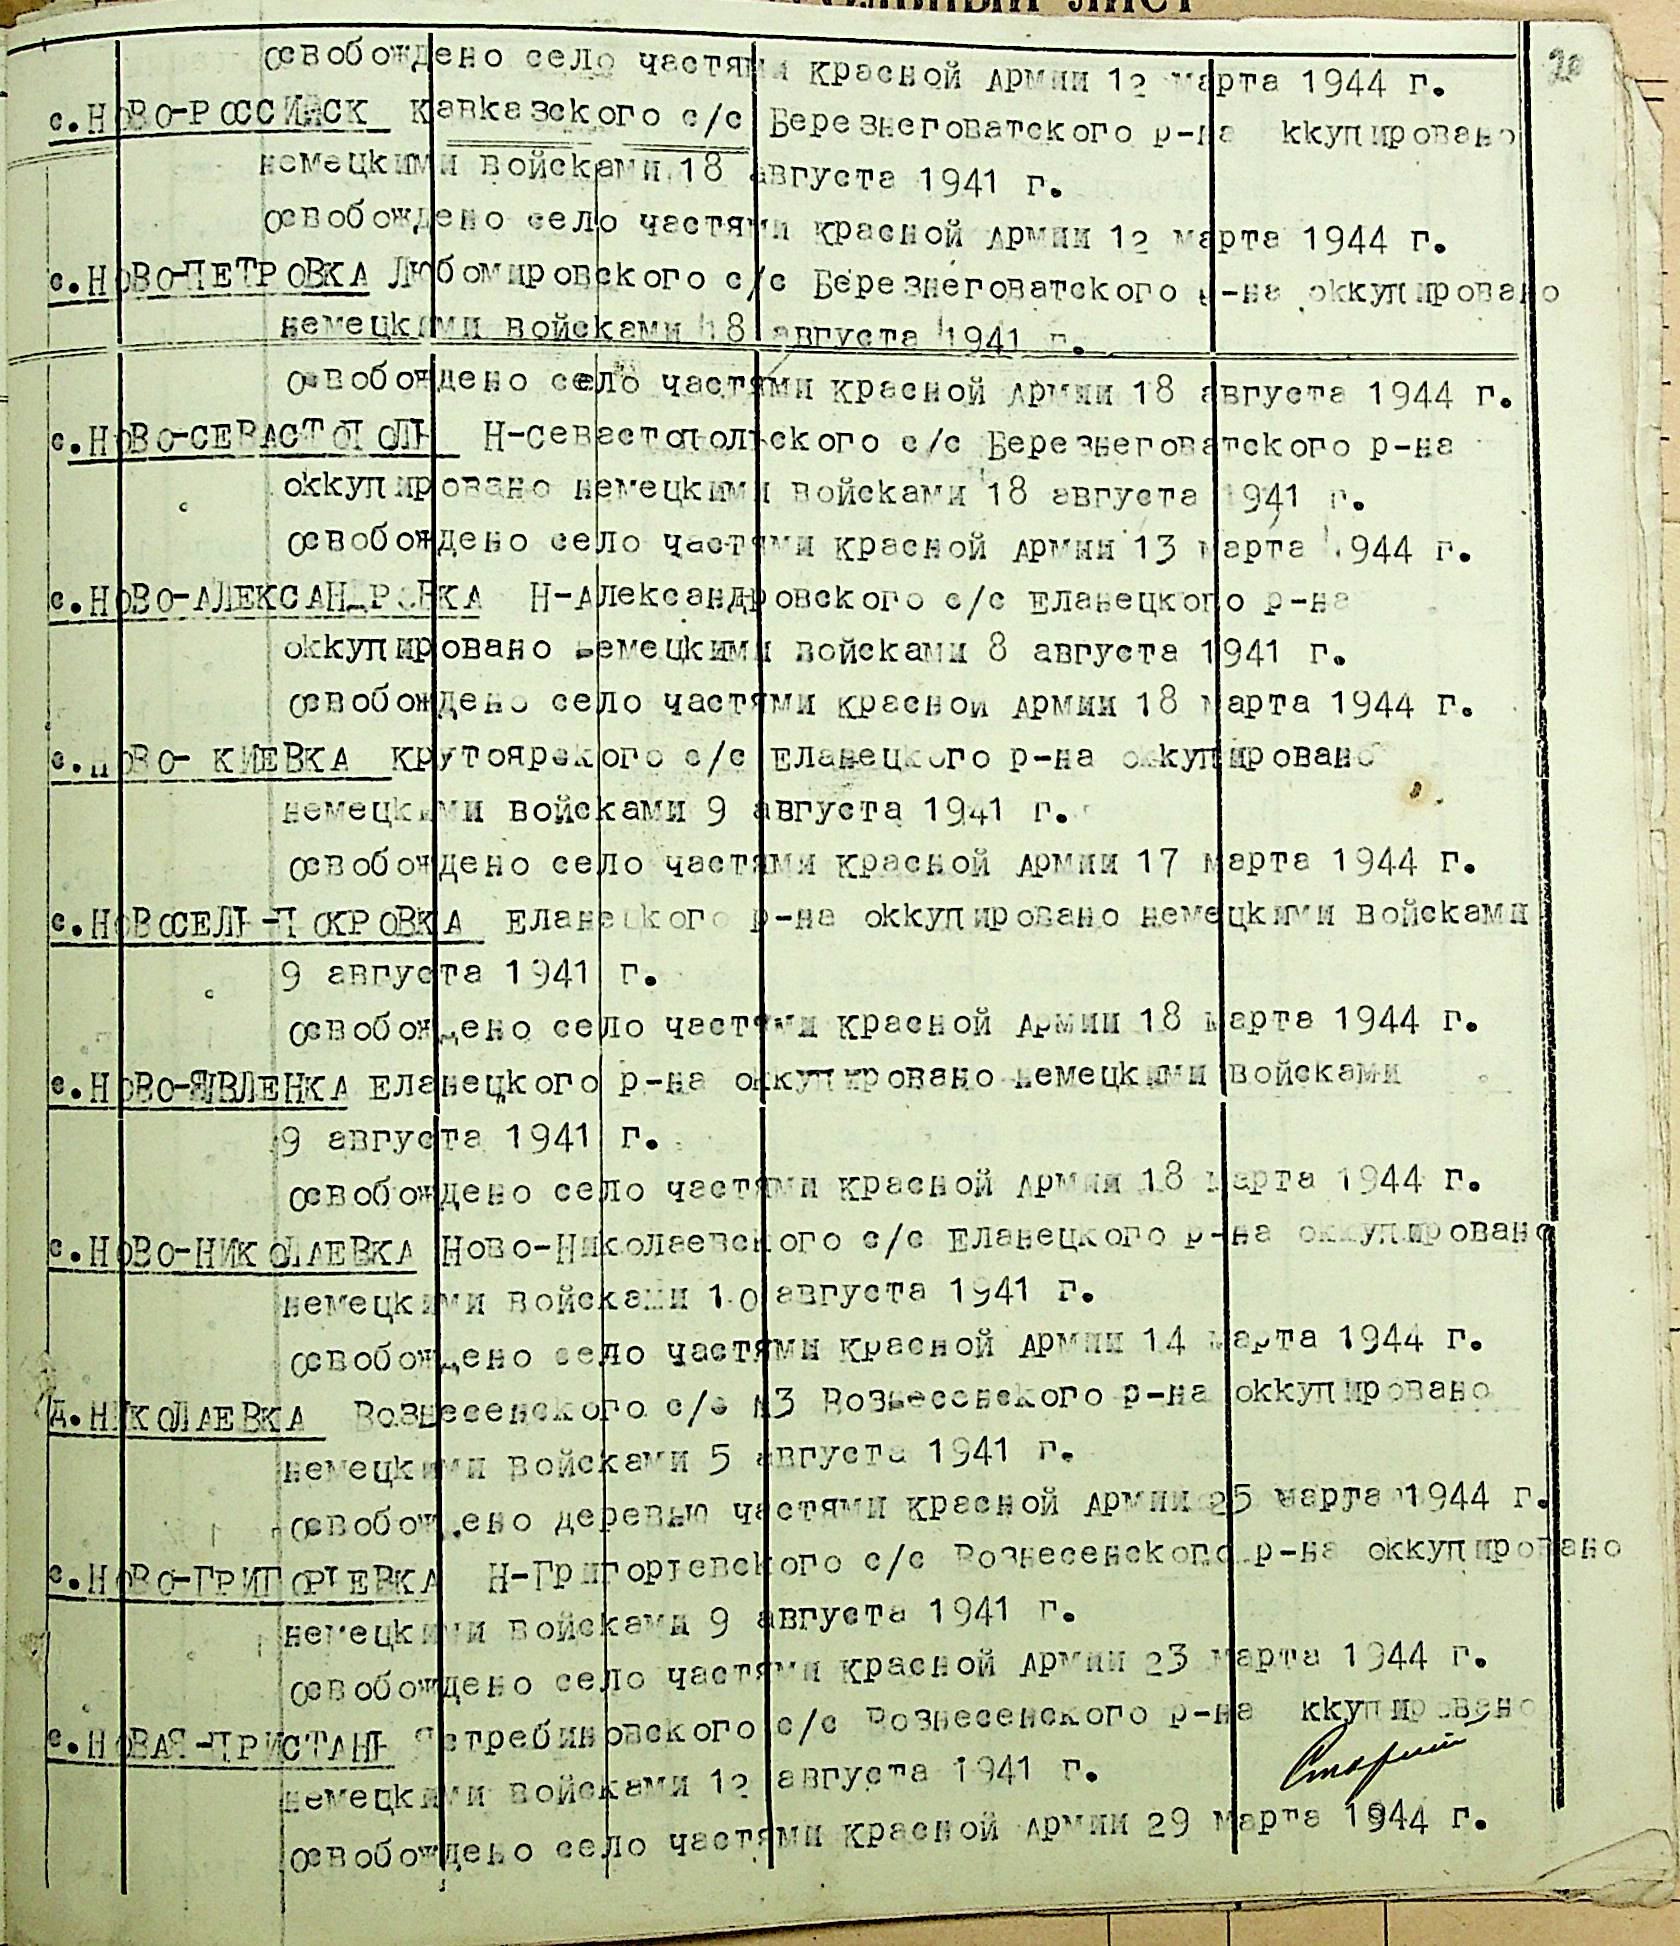 ОЛЬНЫЙ ЛИСТ
20
освобождено село частями красной Армии 12 марта 1944 г.
с.НОВО-РОССИЙСК Кавказского с/с Березнеговатского р-на ккупировано
немецкими войсками 18 августа 1941 г.
освобождено село частями красной Армии 12 марта 1944 г.
с.НОВО-ПЕТРОВКА Любомировского с/с Березнеговатского р-на оккупировано
немецкими войсками 18 августа 1941 г.
освобождено село частями красной Армии 18 августа 1944 г.
с.НОВО-СЕВАСТОПОЛЬ Н-Севастопольского с/с Березнеговатского р-на
оккупировано немецкими войсками 18 августа 1941 г.
освобождено село частями красной Армии 13 марта 1944 г.
с.НОВО-АЛЕКСАНДРОВКА Н-Александровского с/с Еланецкого р-на
оккупировано немецкими войсками 8 августа 1941 г.
освобождено село частями красной Армии 18 марта 1944 г.
с.НОВО- КИЕВКА Крутоярского с/с Еланецкого р-на оккупировано
немецкими войсками 9 августа 1941 г.
освобождено село частями красной Армии 17 марта 1944 г.
с.НОВОСЕЛЬ-ПОКРОВКА Еланецкого р-на оккупировано немецкими войсками
9 августа 1941 г.
освобождено село частями красной Армии 18 марта 1944 г.
с.НОВО-ЯВЛЕНКА Еланецкого р-на оккупировано немецкими войсками
9 августа 1941 г.
освобождено село частями красной Армии 18 марта 1944 г.
с.НОВО-НИКОЛАЕВКА Ново-Николаевского с/с Еланецкого р-на оккупировано
немецкими войсками 10 августа 1941 г.
освобождено село частями красной Армии 14 марта 1944 г.
д.НИКОЛАЕВКА Вознесенского с/с №3 Вознесенского р-на оккупировано
немецкими войсками 5 августа 1941 г.
освобождено деревью частями красной Армии 25 марта 1944 г.
с.НОВО-ГРИГОРІЕВКА Н-Григоріевского с/с Вознесенского р-на оккупировано
немецкими войсками 9 августа 1941 г.
освобождено село частями красной Армии 23 марта 1944 г.
с.НОВАЯ-ПРИСТАНЬ Ястребиновского с/с Вознесенского р-на ккупировано
немецкими войсками 12 августа 1941 г.
освобождено село частями красной Армии 29 марта 1944 г.